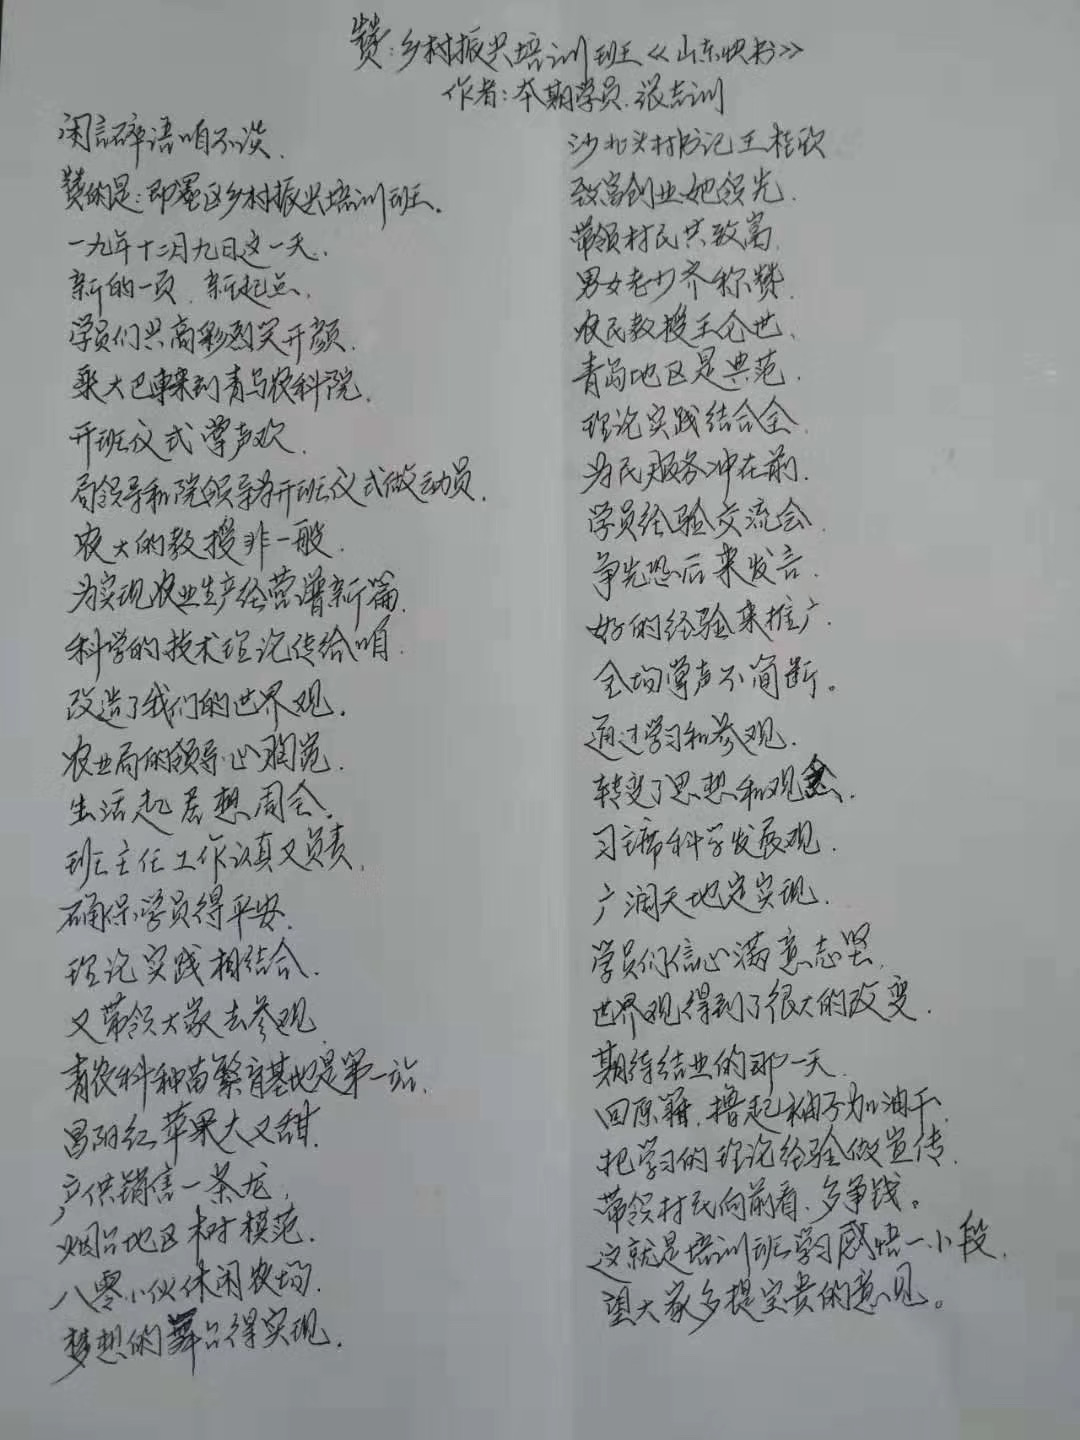 赞:乡村振兴培训班《山东快书》
作者:本期学员.张吉训
闲言碎语咱不谈.
赞的是:即墨区乡村振兴培训班.
一九年十二月九日这一天.
新的一页.新起点.
学员们兴高彩烈笑开颜.
乘大巴车来到青岛农科院.
开班仪式掌声欢.
局领导和院领导为开班仪式做动员.
农大的教授非一般.
为实现农业生产经营谱新篇.
科学的技术理论传给咱.
改造了我们的世界观.
农业局的领导心胸宽.
生活起居想周全.
班主任工作认真又负责.
确保学员得平安.
理论实践相结合.
又带领大家去参观
青农科种苗繁育基地是第一站.
昌阳红苹果大又甜.
产供销售一条龙.
烟台地区树模范.
八零小伙休闲农场.
梦想的舞台得实现.
沙北头村书记王桂欣
致富创业她领先.
带领村民共致富.
男女老少齐称赞.
农民教授王仑世.
青岛地区是典范.
理论实践结合全.
为民服务冲在前.
学员经验交流会.
争先恐后来发言.
好的经验来推广.
全场掌声不简断。
通过学习和参观.
转变了思想和观念.
习主席科学发展观.
广阔天地定实现.
学员们信心满意志坚.
世界观得到了很大的改变.
期待结业的那一天.
回原籍.撸起袖子加油干.
把学习的理论经验做宣传.
带领村民向前看.多争钱。
这就是培训班学习感悟一小段.
望大家多提宝贵的意见。